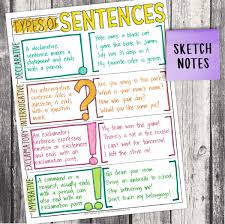 TYPES OF SENTENCES
SKETCH
NOTES
DECLARATIVE
A declarative
sentence makes a
statement and ends
with a period.
Pete owns a black cat.
I gave the book to James.
INTERROGATIVE
An interrogative
sentence asks a
question and ends with
a question mark.
Are you going to the park?
What is your name?
How was your day?
Would you like some pie?
EXCLAMATORY
An exclamatory
sentence expresses
emotion or excitement
and ends with an
exclamation point.
My team won the game!
There's a rat in the house!
I can't wait for tomorrow!
IMPERATIVE
A command or a
request, usually ends
with a period, can
also end with an
exclamation point.
Go clean your room.
Bring an umbrella to school.
Stop bothering me!
Don't touch my belongings!